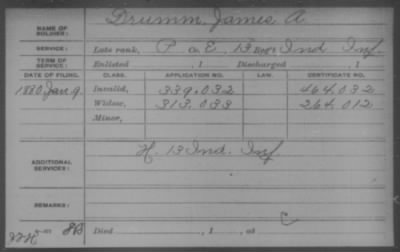 NAME OF SOLDIER: Drumm, James A.
SERVICE: Late rank, P Co E, 13 Reg't Ind Inf.
TERM OF SERVICE: Enlisted , 1 Discharged , 1
DATE OF FILING. CLASS. APPLICATION NO. LAW. CERTIFICATE NO.
1880 Jan 9. Invalid, 339.032 464.032
Widow, 313.033 264.012
Minor,
ADDITIONAL SERVICES: H. 13 Ind. Inf
REMARKS:
Died , 1 , at